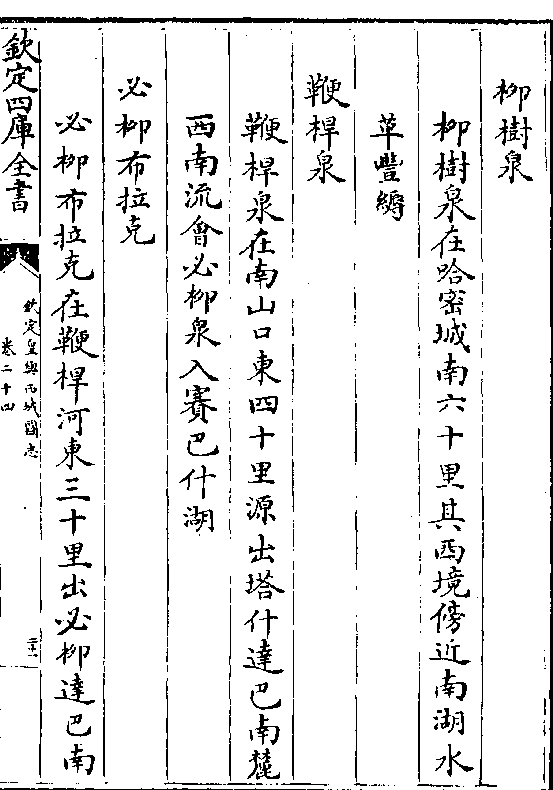 柳樹泉
柳樹泉在哈密城南六十里其西境傍近南湖水
草豐縟
鞭桿泉
鞭桿泉在南山口東四十里源出塔什達巴南麓
西南流會必柳泉入賽巴什湖
必柳布拉克
必柳布拉克在鞭桿河東三十里出必柳達巴南
欽定四庫全書
欽定皇輿西域圖志
卷二十四